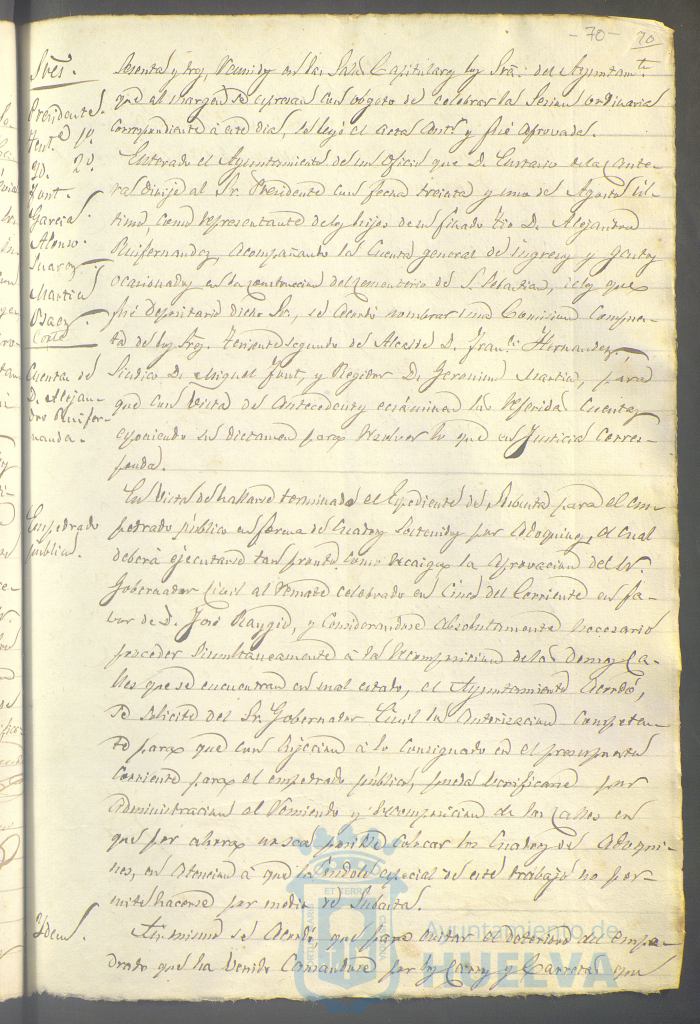 - 70 -
70
Sres.
Presidente.
Tente. 1º
Yd. 2º
Funt.
García.
Alonso.
Suarez
Martin
Baez
Corte
sesenta y tres, reunidos en las Salas Capitulares los Sres. del Ayuntamto.
que al margen se expresan con objeto de celebrar la Sesion ordinaria
correspondiente á este dia, se leyó el acta antr. y fué aprovada.
Cuentas de
D. Alejan-
dro Ruifer-
nandez.
Enterado el Ayuntamiento de un oficio que D. Eustasio de la Cante-
ra dirije al Sr. Presidente con fecha treinta y uno de Agosto úl-
timo, como representante de los hijos de su finado tio D. Alejandro
Ruifernandez, acompañando la Cuenta general de ingresos y gastos
ocasionados en la construccion del cementerio de S. Sebastian, de los que
fué depositario dicho Sr., se acordó nombrar una Comision compues-
ta de los Sres. Teniente segundo de Alcalde D. Franco. Hernandez,
Sindico D. Miguel Funt, y Regidor D. Geronimo Martin, para
que con vista de antecedentes ecsaminen la referida cuenta,
esponiendo su dictamen para resolver lo que en Justicia corres-
ponda.
Empedrado
público.
En vista de hallarse terminado el Espediente de Subasta para el em-
pedrado público en forma de cuadros sostenidos por adoquines, el cual
deberá ejecutarse tan pronto como recaiga la aprovacion del Sr.
Gobernador Civil al remate celebrado en cinco del corriente en fa-
vor de D. José Raygid, y considerandose absolutamente necesario
proceder simultaneamente á la recomposicion de las demas ca-
lles que se encuentran en mal estado, el Ayuntamiento acordó,
se solicite del Sr. Gobernador Civil la autorizacion competen-
te para que con sujecion á lo consignado en el presupuesto
corriente para el empedrado público, pueda verificarse por
administracion el remiendo y recomposicion de las calles en
que por ahora no sea posible colocar los cuadros de adoqui-
nes, en atencion á que la índole especial de este trabajo no per-
mite hacerse por medio de subasta.
Ydem.
Asi mismo se acordó, que para evitar el deterioro del empe-
drado que ha venido causandose por los carros y carretas que
Ayuntamiento de
HUELVA